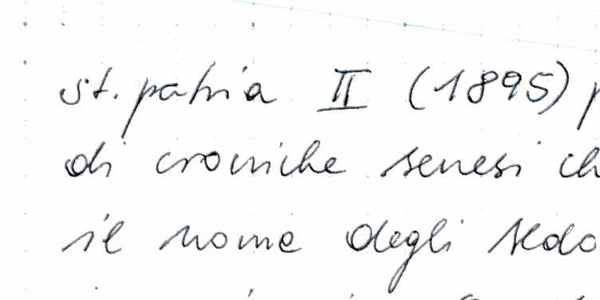 st. patria II (1895)
di croniche senesi
il nome degli